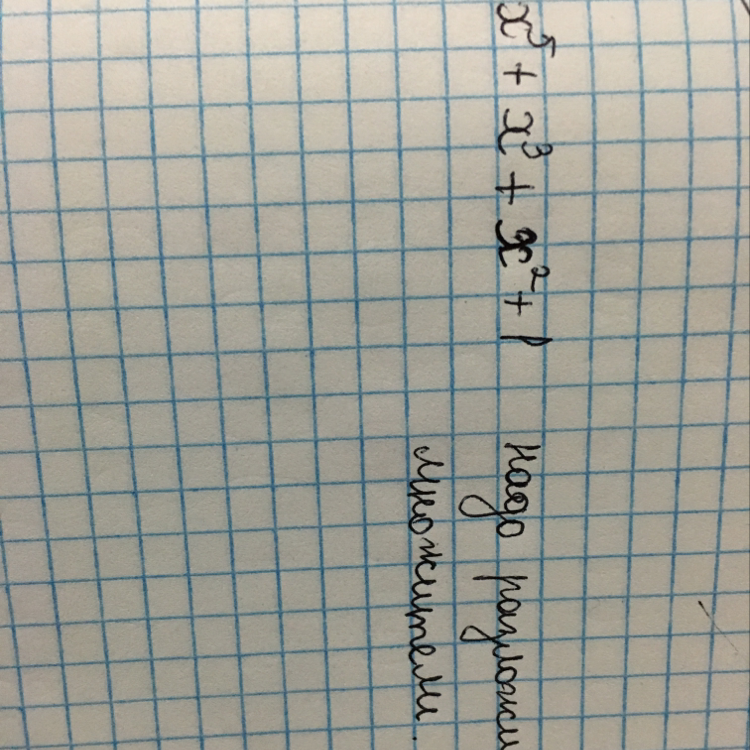 x⁵ + x³ + x² + 1 надо разложи
множители.